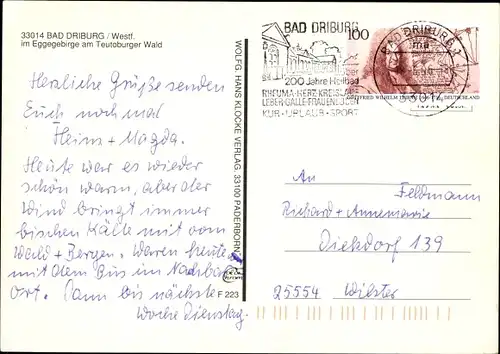 33014 BAD DRIBURG / Westf.
im Eggegebirge am Teutoburger Wald
Herzliche Grüße senden
Euch noch mal
Heim + Magda.
Heute war es wieder
schön warm, aber der
Wind bringt immer
bischen Kälte mit vom
Wald + Bergen. Waren heute
mit dem Bus im Nachbar
Ort. Dann bis nächste
Woche Dienstag.
WOLFG. HANS KLOCKE VERLAG, 33100 PADERBORN
F 223
BAD DRIBURG
200 Jahre Heilbad
RHEUMA-HERZ-KREISLAUF
LEBER-GALLE-FRAUENLEIDEN
KUR-URLAUB-SPORT
100
BAD DRIBURG 1
GOTTFRIED WILHELM DEUTSCHLAND
An
Feldmann
Richard + Annemarie
Diekdorf 139
25554 Wilster